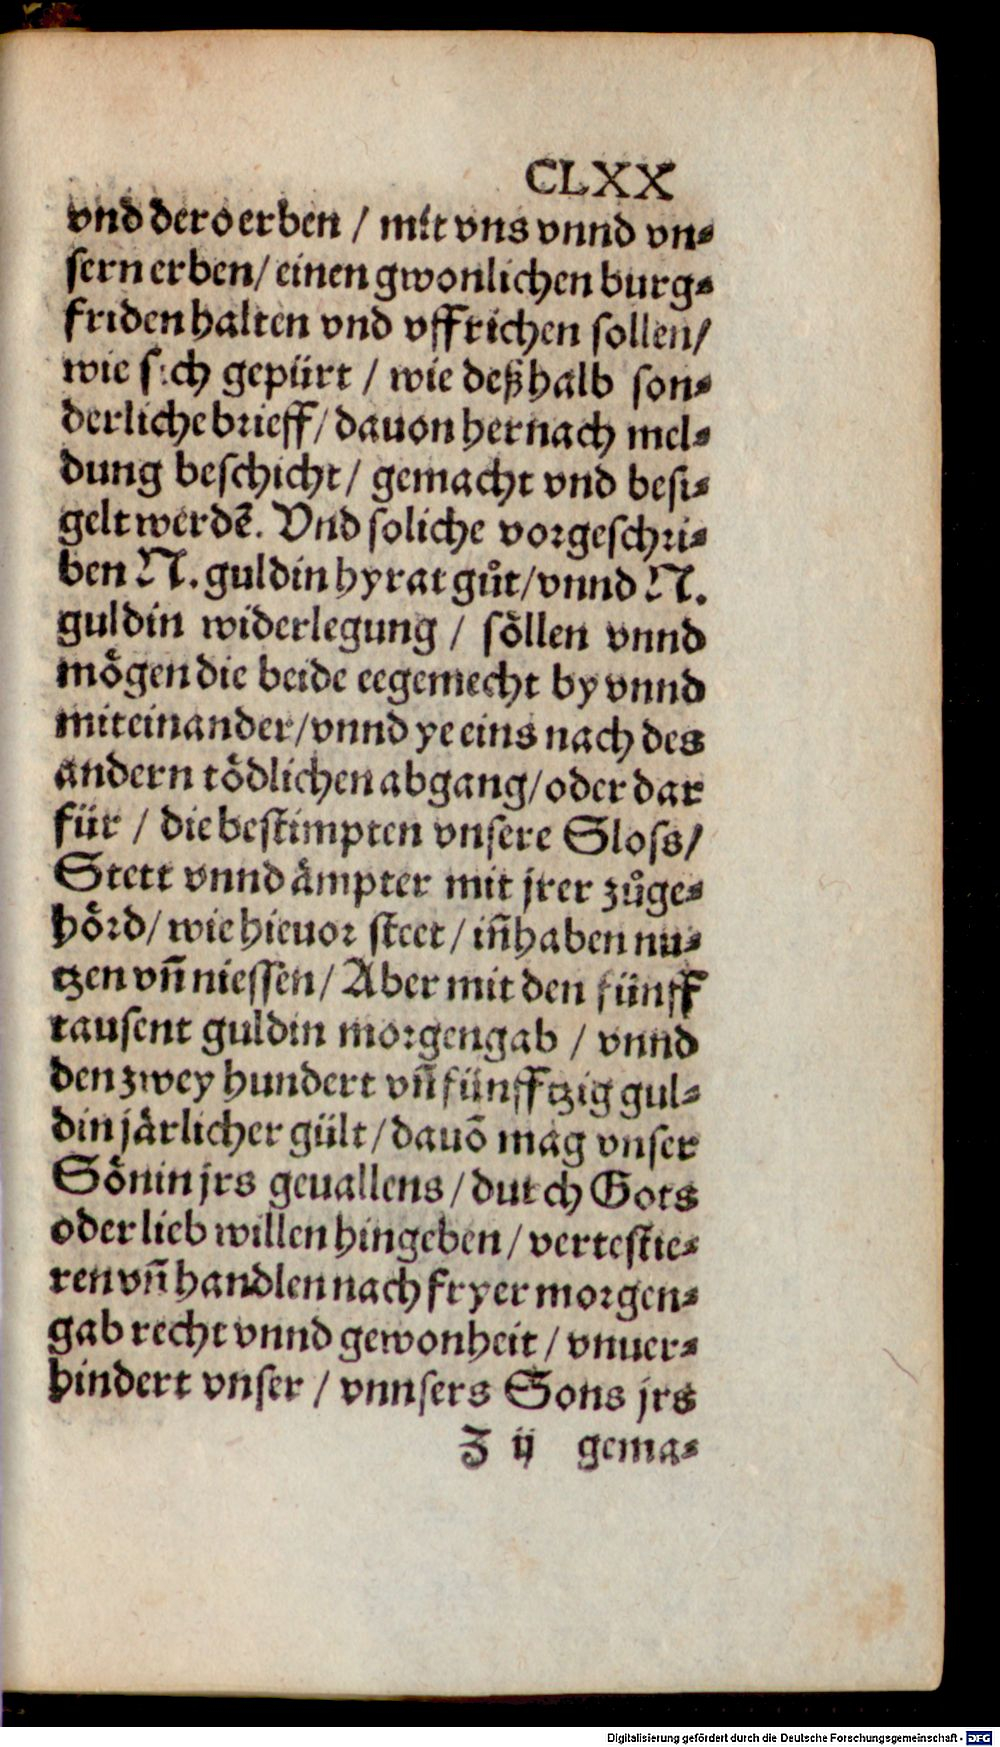 CLXX
vnd dero erben / mit vns vnnd vn⸗
sern erben / einen gwonlichen burg⸗
friden halten vnd vffrichen sollen /
wie sich gepürt / wie deßhalb son⸗
derliche brieff / dauon hernach mel⸗
dung beschicht / gemacht vnd besi⸗
gelt werdē. Vnd soliche vorgeschri⸗
ben N. guldin hyrat gůt / vnnd N.
guldin widerlegung / söllen vnnd
mögen die beide eegemecht by vnnd
miteinander / vnnd ye eins nach des
andern tödlichen abgang / oder dar
für / die bestimpten vnsere Sloss /
Stett vnnd ämpter mit jrer zůge⸗
hörd / wie hieuor steet / iñhaben nu⸗
tzen vñ niessen / Aber mit den fünff
tausent guldin morgengab / vnnd
den zwey hundert vñ fünfftzig gul⸗
din järlicher gült / dauō mag vnser
Sönin jrs geuallens / durch Gots
oder lieb willen hingeben / vertestie⸗
ren vñ handlen nach fryer morgen⸗
gab recht vnnd gewonheit / vnuer⸗
hindert vnser / vnnsers Sons jrs
Z ij gema⸗
Digitalisierung gefördert durch die Deutsche Forschungsgemeinschaft - DFG